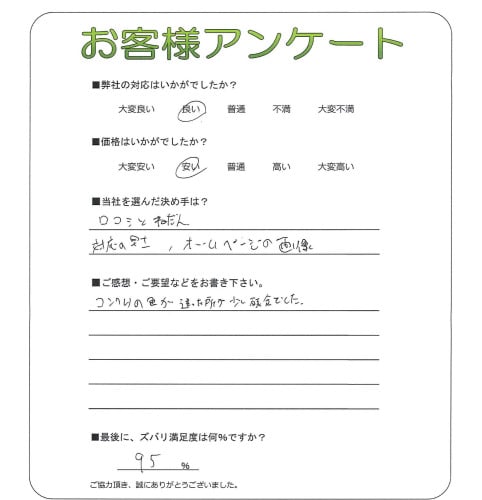 お客様アンケート
■弊社の対応はいかがでしたか？
大変良い 良い 普通 不満 大変不満
■価格はいかがでしたか？
大変安い 安い 普通 高い 大変高い
■当社を選んだ決め手は？
口コミと ねだん
対応の早さ , ホームページの画像
■ご感想・ご要望などをお書き下さい。
コンクリの色が 違った所が 少し残念でした.
■最後に、ズバリ満足度は何%ですか？
95 %
ご協力頂き、誠にありがとうございました。